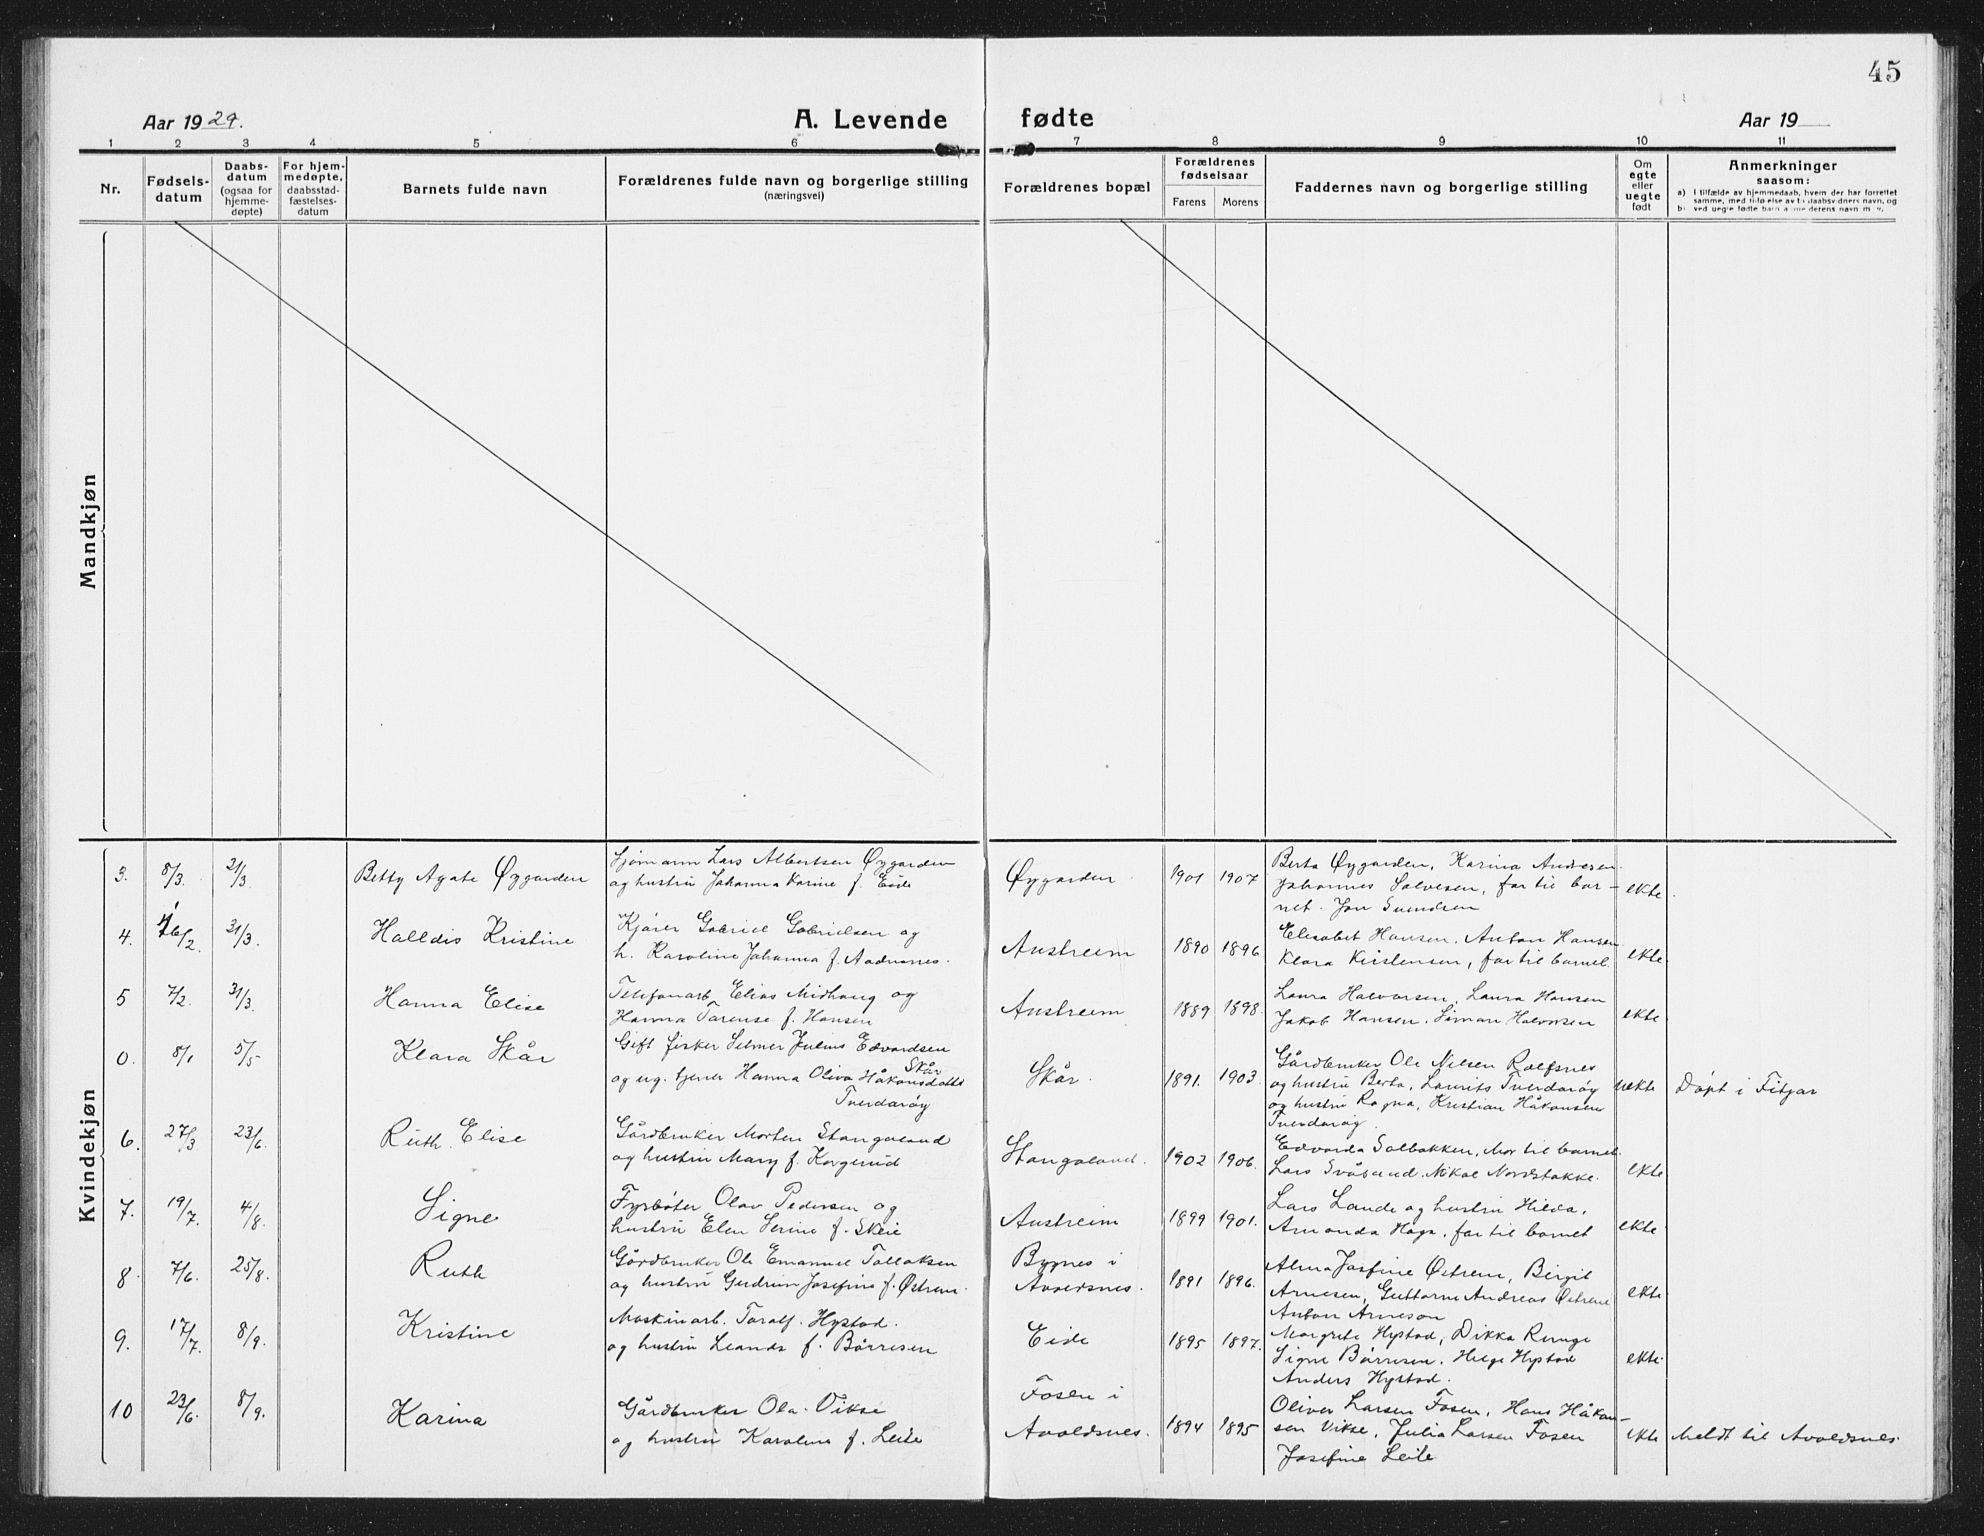 45
Aar 1929.
A. Levende fødte
Aar 19
1 2 3 4 5 6 7 8 9 10 11
Nr.
Fødsels-
datum
Daabs-
datum
(ogsaa for
hjemme-
døpte)
For hjem-
medøpte,
daabsstad-
fæstelses-
datum
Barnets fulde navn
Forældrenes fulde navn og borgerlige stilling
(næringsvei)
Forældrenes bopæl
Forældrenes
fødselsaar
Farens Morens
Faddernes navn og borgerlige stilling
Om
egte
eller
uegte
født
Anmerkninger
saasom:
a) I tilfælde av hjemmedaab, hvem der har forrettet
samme, med tilføielse av to daabsvidners navn, og
b) ved uegte fødte barn
Mandkjøn
Kvindekjøn
3. 8/3. 31/3. Betty Agate Øygarden
Sjømann Lars Albertsen Øygarden
og hustru Johanna Karine f. Eide
Øygarden 1901 1907
Berta Øygarden, Karina Andresen
Johannes Salvesen, far til bar-
net. Jon Svendsen
ekte.
4. 16/2. 31/3. Halldis Kristine
Kjører Gabriel Gabrielsen og
h. Karoline Johanna f. Aadnanes.
Austreim 1890 1896
Elisabet Hansen, Anton Hansen
Klara Kristensen, far til barnet.
ekte
5 7/2. 31/3. Hanna Elise
Telefonarb. Elias Midhaug og
Hanna Tarense f. Hansen
Austreim 1889 1898.
Laura Halvorsen, Laura Hansen
Jakob Hansen. Simon Halvorsen
ekte.
0. 8/1 5/5 Klara Skår
Gift fisker Selmer Julius Edvardsen
Skår
og ug. tjener Hanna Oliva Håkonsdotter
Tverdarøy
Skår. 1891. 1903.
Gårdbruker Ole Nilsen Rolfsnes
og hustru Berta, Laurits Tverdarøy
og hustru Ragna, Kristian Håkonsen
Tverdarøy.
uekte Døpt i Fitjar
6. 27/3 23/6. Ruth Elise
Gårdbruker Morten Stangaland
og hustru Mary f. Korgerud
Stangaland. 1902 1906.
Edvarda Solbakken, Mor til barnet.
Lars Svåsand. Nikal Nordstokke.
ekte
7. 19/7. 4/8. Signe
Fyrbøter Olav Pedersen og
hustru Elen Serine f. Skeie
Austreim 1899 1901.
Lars Lande og hustru Hilda,
Amanda Haga, far til barnet
ekte
8. 7/6. 25/8. Ruth
Gårdbruker Ole Emanuel Tollaksen
og hustru Gudrun Josefine f. Østrem.
Bygnes i
Avaldsnes. 1891 1896.
Alma Josfine Østrem, Birgit
Arnesen, Guttorm Andreas Østrem
Anton Arneson
ekte
9. 17/7. 8/9. Kristine
Maskinarb. Toralf Hystad.
og hustru Leands f. Børresen
Eide 1895 1897.
Margrete Hystad, Dikka Runge
Signe Børresen. Helge Hystad
Anders Hystad.
ekte.
10 23/6. 8/9. Karina
Gårdbruker Ola Vikse
og hustru Karoline f. Leite
Fosen i
Avaldsnes. 1894 1895
Oliver Larsen Fosen, Hans Håkon-
sen Vikse, Julia Larsen Fosen
Josefine Leite
ekte Meldt til Avaldsnes.